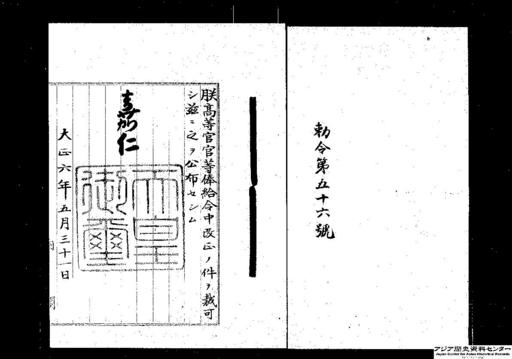 勅令第五十六號
朕高等官官等俸給令中改正ノ件ヲ裁可
シ茲ニ之ヲ公布セシム
嘉仁
天皇御璽
大正六年五月三十一日
アジア歴史資料センター
Japan Center for Asian Historical Records